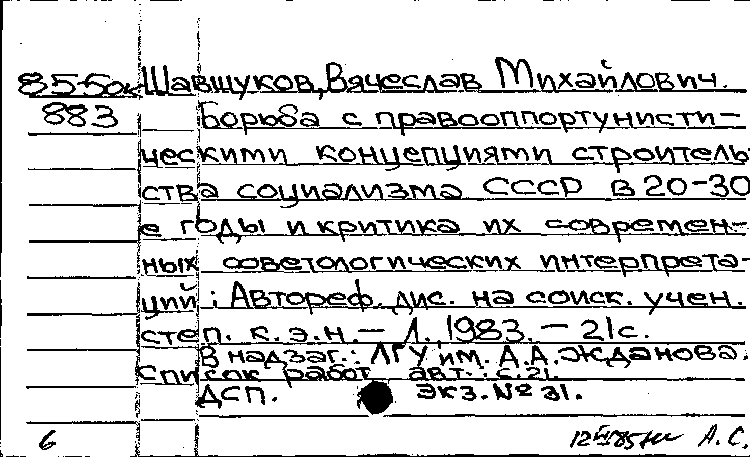 85-50к Шавшуков, Вячеслав Михайлович.
883 Борьба с правооппортунисти-
ческими концепциями строитель
ства социализма СССР в 20-30
е годы и критика их современ-
ных советологических интерпрета-
ций : Автореф. дис. на соиск. учен.
степ. к.э.н. — Л., 1983. — 21с.
В надзаг.: ЛГУ им. А.А. Жданова.
Список работ авт.: с.21.
ДСП. экз. № 31.
6 А.С.